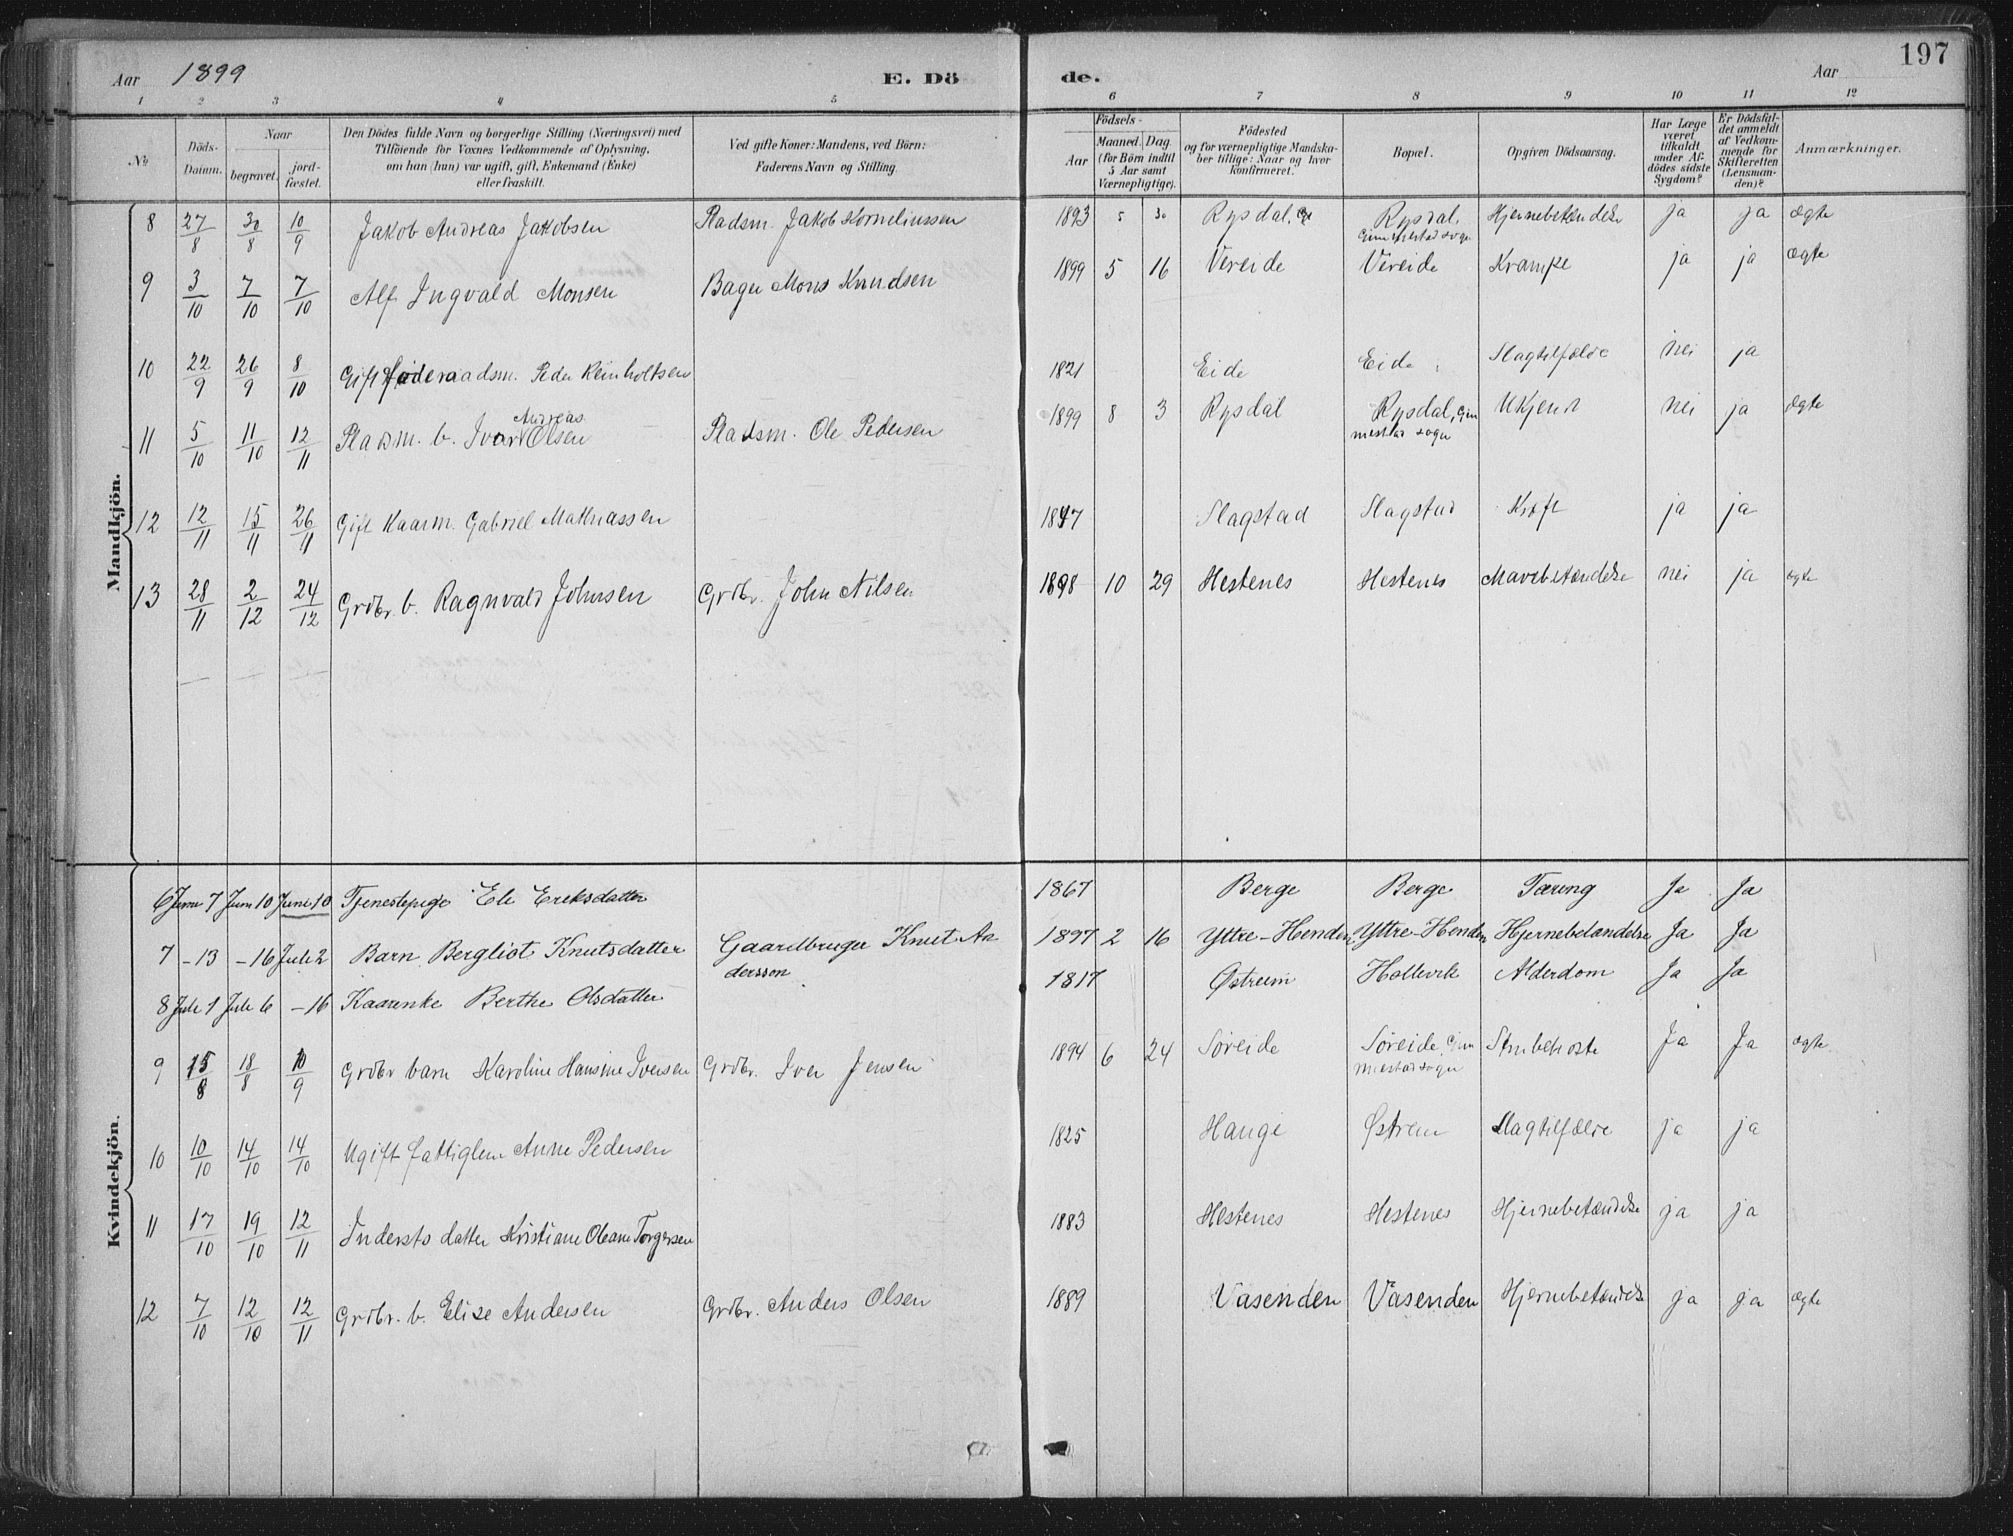 Aar 1899 E. Dö de. Aar 197
1 2 3 4 5 6 7 8 9 10 11 12
No
Döds-Datum.
Naar
begravet.
jord-fæstet.
Den Dödes fulde Navn og borgerlige Stilling (Næringsvei) med
Tilföiende for Voxnes Vedkommende af Oplysning,
om han (hun) var ugift, gift, Enkemand (Enke)
eller fraskilt.
Ved gifte Koner: Mandens, ved Börn:
Faderens Navn og Stilling.
Födsels-
Aar
Maaned. Dag.
(for Börn indtil
5 Aar samt
Værnepligtige).
Födested
og for værnepligtige Mandska-
ber tillige: Naar og hvor
konfirmeret.
Bopæl.
Opgiven Dödsaarsag.
Har Læge
været
tilkaldt
under Af-
dödes sidste
Sygdom?
Er Dödsfal-
det anmeldt
af Vedkom-
mende for
Skifteretten
(Lensman-
den)?
Anmærkninger.
Mandkjön.
8 27/8 30/8 10/9 Jakob Andreas Jakobsen Pladsm. Jakob Korneliussen 1893 5 30 Rysdal, Rysdal, Gimmestad sogn Hjernebetændelse ja ja ægte
9 3/10 7/10 7/10 Alf Ingvald Monsen Bager Mons Knudsen 1899 5 16 Vereide Vereide Krampe ja ja ægte
10 22/9 26/9 8/10 Gift Føderaadsm. Peder Reinholtsen 1821 Eide Eide Slagtilfælde nei ja
11 5/10 11/10 12/11 Pladsm. b. Ivar Andreas Olsen Pladsm. Ole Pedersen 1899 8 3 Rysdal Rysdal, Gimmestad sogn Ukjendt nei ja ægte
12 12/11 15/11 26/11 Gift Kaarm. Gabriel Mathiassen 1847 Slagstad Slagstad Kræft ja ja
13 28/11 2/12 24/12 Grdbr. b. Ragnvald Johnsen Grdbr. John Nilsen 1898 10 29 Hestenes Hestenes Mavebetændelse nei ja ægte
Kvindekjön.
6 Juni 7 Juni 10 Juni 10 Tjenestepige Eli Eriksdatter 1867 Berge Berge Tæring Ja Ja
7 - 13 - 16 Juli 2 Barn Bergliot Knutsdatter Gaardbruger Knut Andersson 1897 2 16 Yttre-Henden Yttre-Henden Hjernebetændelse Ja Ja
8 Juli 1 Juli 6 - 16 Kaarenke Berthe Olsdatter 1817 Østreim Hollevik Alderdom Ja Ja
9 15/8 18/8 10/9 Grdbr barn Karoline Hansine Iversen Grdbr. Iver Jensen 1894 6 24 Søreide Søreide, Gimmestad sogn Strubehoste Ja Ja ægte
10 10/10 14/10 14/10 Ugift fattiglem Anne Pedersen 1825 Hauge Østrem Slagtilfælde ja ja
11 17/10 19/10 12/11 Inderstsdatter Kristiane Oleane Torgersen 1883 Hestenes Hestenes Hjernebetændelse ja ja
12 7/10 12/10 12/11 Grdbr. b. Elise Andersen Grdbr. Anders Olsen 1889 Vasenden Vasenden Hjernebetændelse ja ja ægte